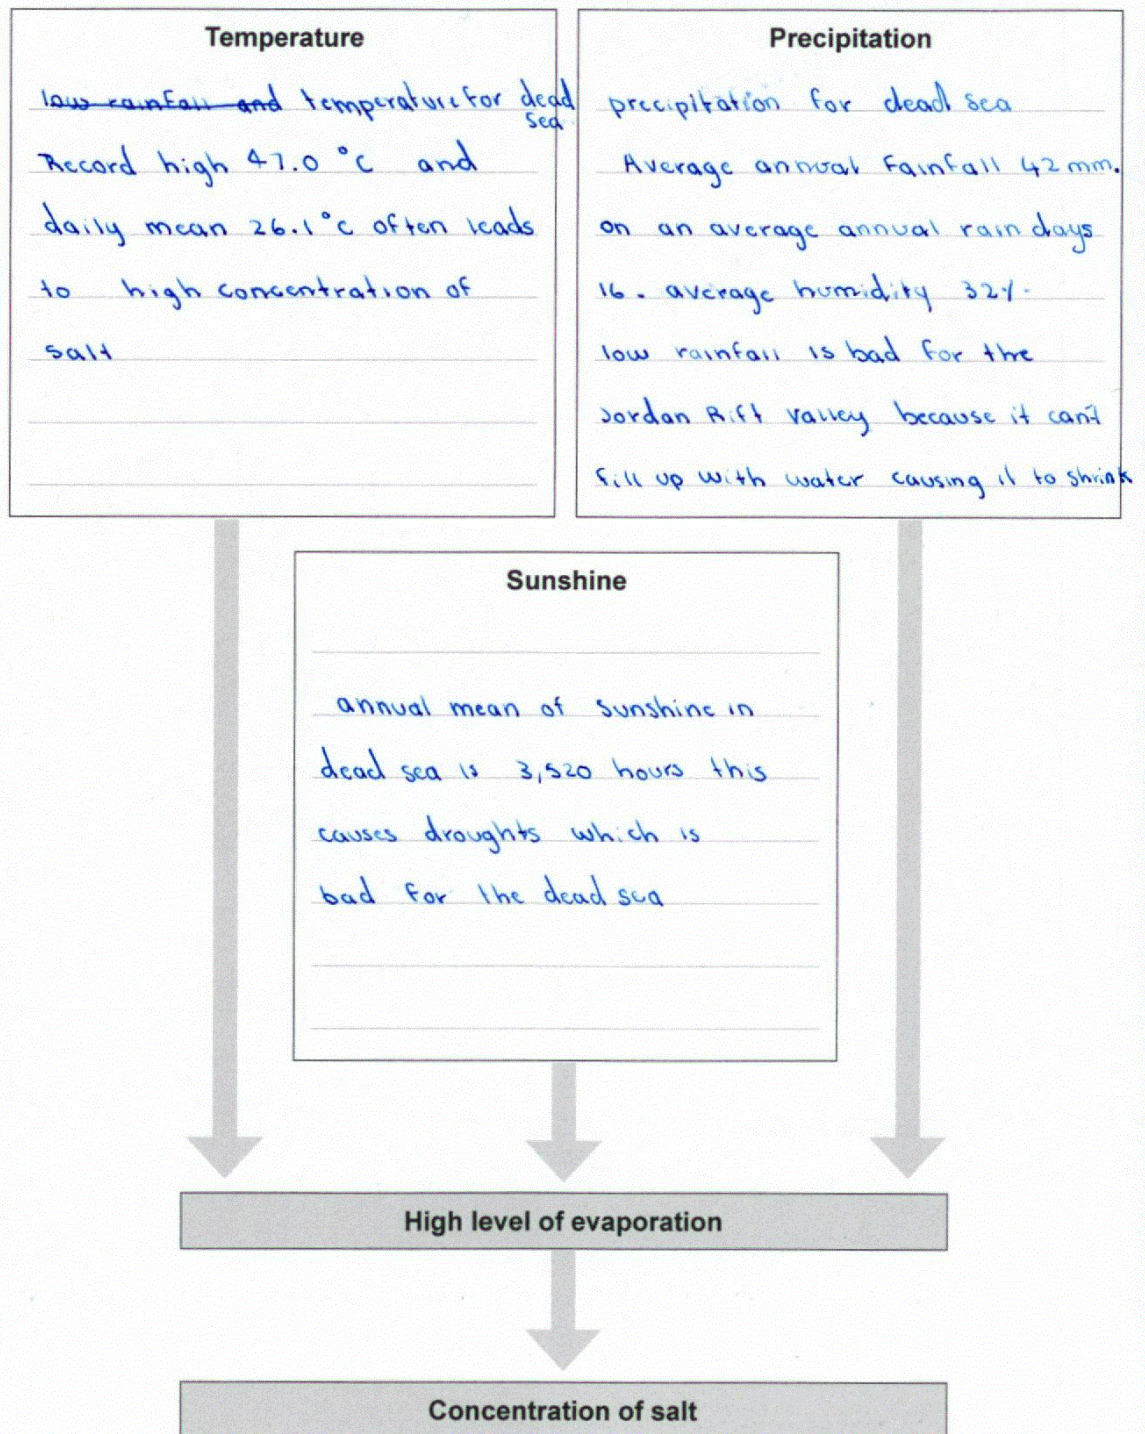 Temperature
low rainfall and temperature for dead
sea
Record high 47.0 °c and
daily mean 26.1°c often leads
to high concentration of
salt
Precipitation
precipitation for dead sea
Average annual fainfall 42 mm.
on an average annual rain days
16. average humidity 32%.
low rainfall is bad for the
Jordan Rift Valley because it can't
fill up with water causing it to shrink
Sunshine
annual mean of sunshine in
dead sea is 3,520 hours this
causes droughts which is
bad for the dead sea
High level of evaporation
Concentration of salt